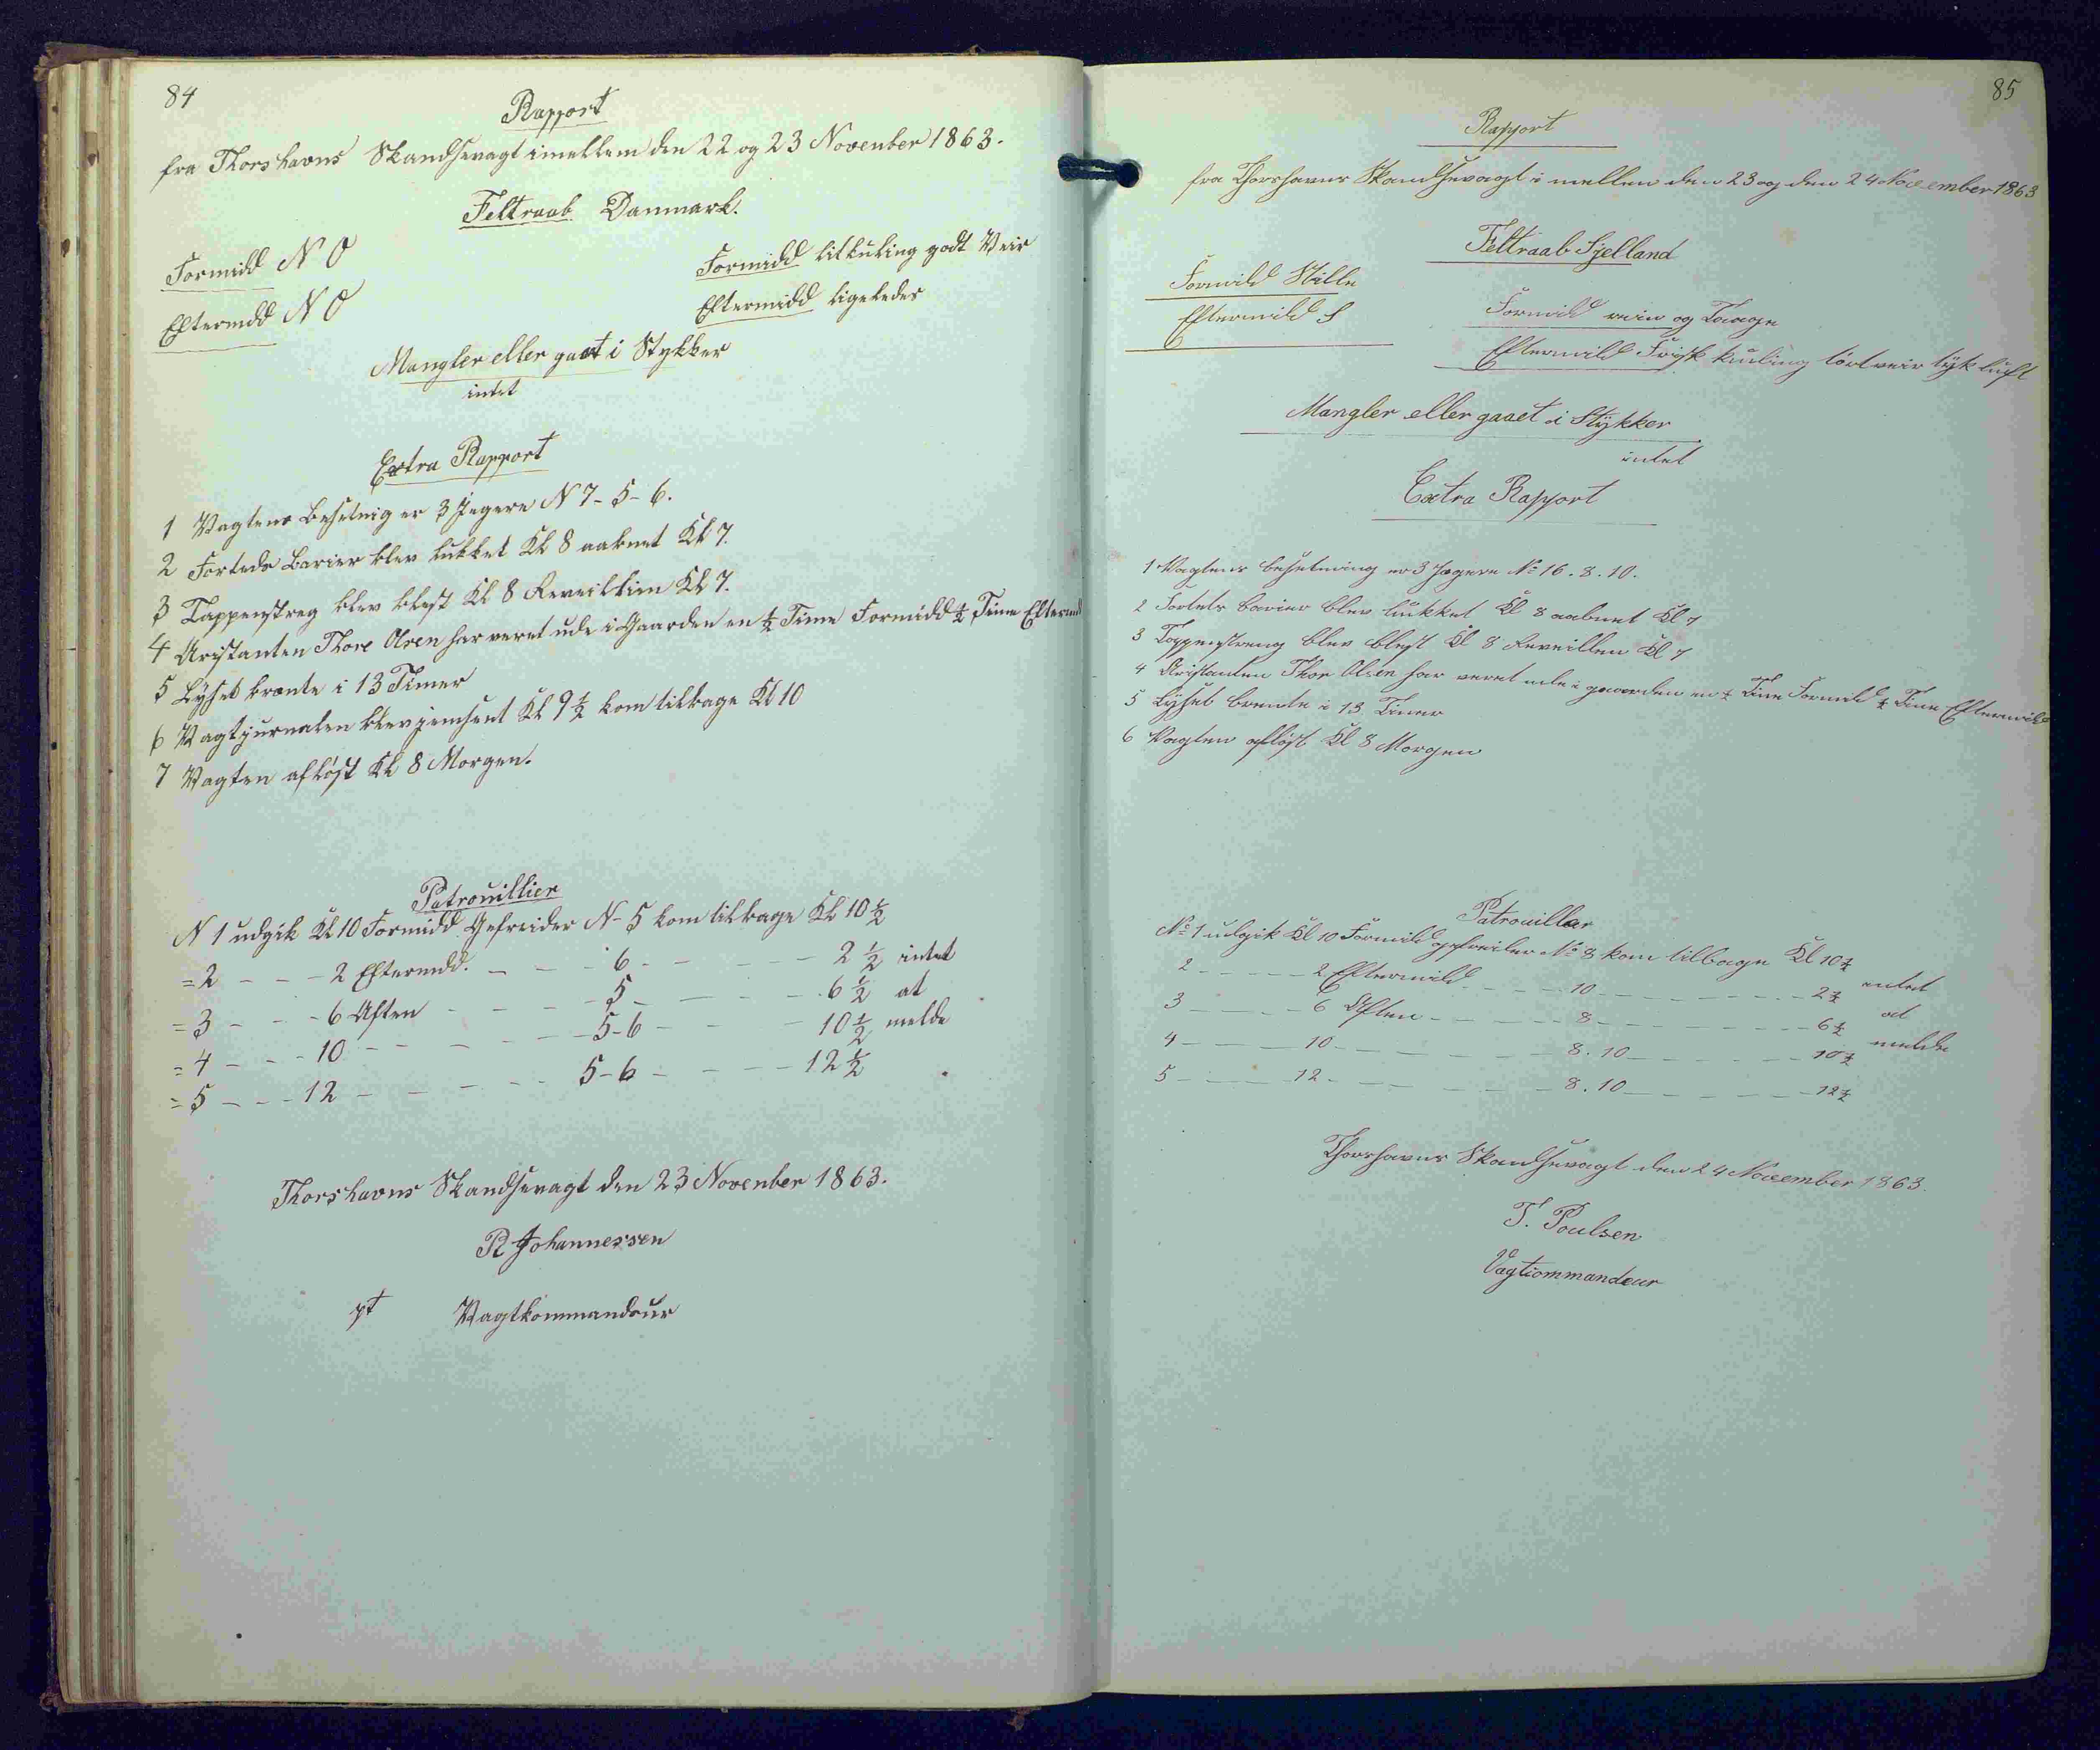 84
Rapport
fra Thorshavns Skandsevagt imellem den 22 og 23 November 1863.
Feltraab Danmark.
Formidd N O
Eftermdd N O
Formidd litkuling godt Veir
Eftermidd ligeledes
Mangler eller gaaet i Stykker
intet
Extra Rapport
1 Vagtens Besetnig er 3 Jegere N 7-5-6.
2 Forteds Barier blev lukket Kl 8 aabnet Kl 7.
3 Tappenstreg blev blest Kl 8 Reveillien Kl 7.
4 Aristanten Thore Olsen har veret ude i Gaarden en ½ Time Formidd ½ Time Eftermd
5 Lyset brente i 13 Timer
6 Vagtjurnalen blev jemsent Kl 9½ kom tilbage Kl 10
7 Vagten afløst Kl 8 Morgen.
Patrouillier
N 1 udgik Kl 10 Formidd Gefreider N- 5 kom tilbage Kl 10½
=2 - - - 2 Eftermdd. - - - 6 - - - - 2½ intet
=3 - - - 6 Aften - - - 5 - - - - 6½ at
=4 - - - 10 - - - - - 5-6 - - - 10½ melde
=5 - - - 12 - - - - 5-6 - - - - 12½
Thorshavns Skandsevagt den 23 November 1863.
R Johannessen
pt Vagtkommandour
85
Rapport
fra Thorshavns Skandsevagt i mellem den 23 og den 24 November 1863
Feltraab Sjelland
Formidd Stille
Eftermidd S
Formidd rein og Taage
Eftermidd Frisk kuling tørt veir tyk luft
Mangler eller gaaet i Stykker
intet
Extra Rapport
1 Vagtens besetning er 3 Jægere No 16. 8. 10.
2 Fortets barier blev lukket Kl 8 aabnet Kl 7
3 Tappenstreng blev blest Kl 8 Reveillen Kl 7
4 Aristanten Thor Olsen har veret ude i gaarden en ½ Time Formidd ½ Time Eftermidd
5 Lyset brente i 13 Timer
6 Vagten afløst Kl 8 Morgen
Patrouiller
No 1 udgik Kl 10 Formidd gefreider No 8 kom tilbage Kl 10½
2 - - - - 2 Eftermidd - - - 10 - - - - - 2½ intet
3 - - - - 6 Aften - - - - 8 - - - - - 6½ at
4 - - - - 10 - - - - - 8. 10 - - - - 10½ melde
5 - - - - 12 - - - - - 8. 10 - - - - 12½
Thorshavns Skandsevagt den 24 November 1863.
T. Poulsen
Vagtcommandeur